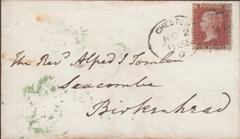 CHESTER
NO 2
The Revd Alfred S Tomlin
Seacombe
Birkenhead